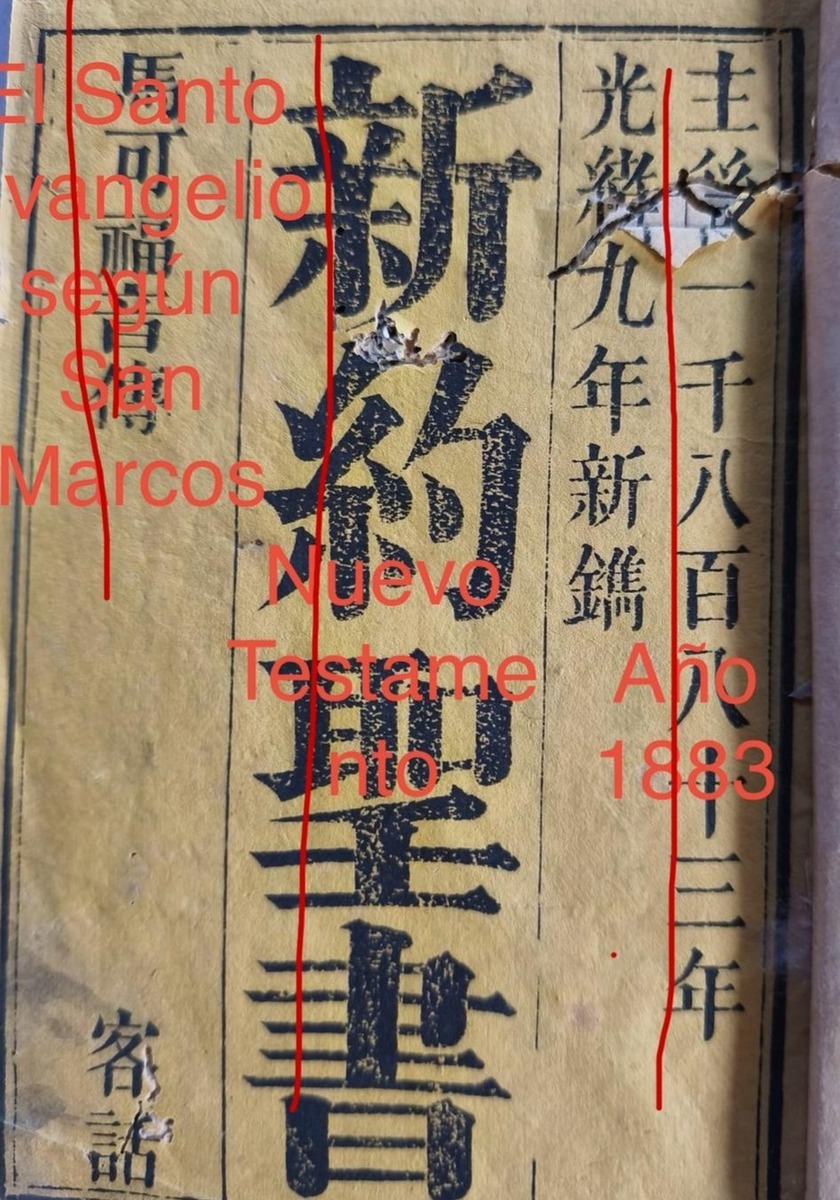 主後一千八百八十三年
光緒九年新鐫
新約聖書
馬可福音傳
客話
El Santo
vangelio
según
San
Marcos
Nuevo
Testame
nto
Año
1883